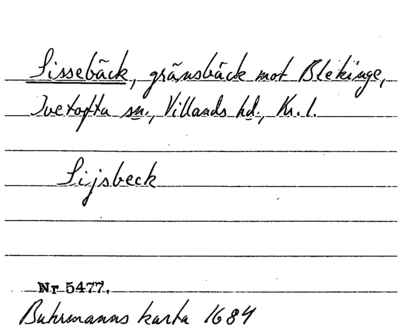 Sissebäck, gränsbäck mot Blekinge,
Ivetofta sn., Villands hd., Kr. l.
Sijsbeck
Nr 5477.
Buhrmanns karta 1684